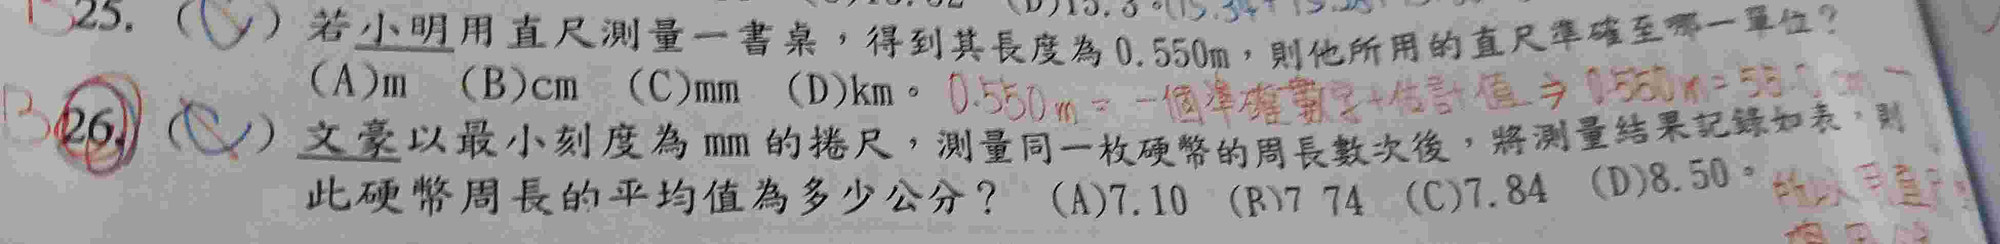 25. ( ) 若小明用直尺測量一書桌，得到其長度為 0.550m，則他所用的直尺準確至哪一單位？
(A)m (B)cm (C)mm (D)km。 0.550m = 一個準確數字+估計值 ⇒ 0.550m = 55.0
B 26. (C) 文豪以最小刻度為 mm 的捲尺，測量同一枚硬幣的周長數次後，將測量結果記錄如表，則
此硬幣周長的平均值為多少公分？ (A)7.10 (B)7 74 (C)7.84 (D)8.50。 所以